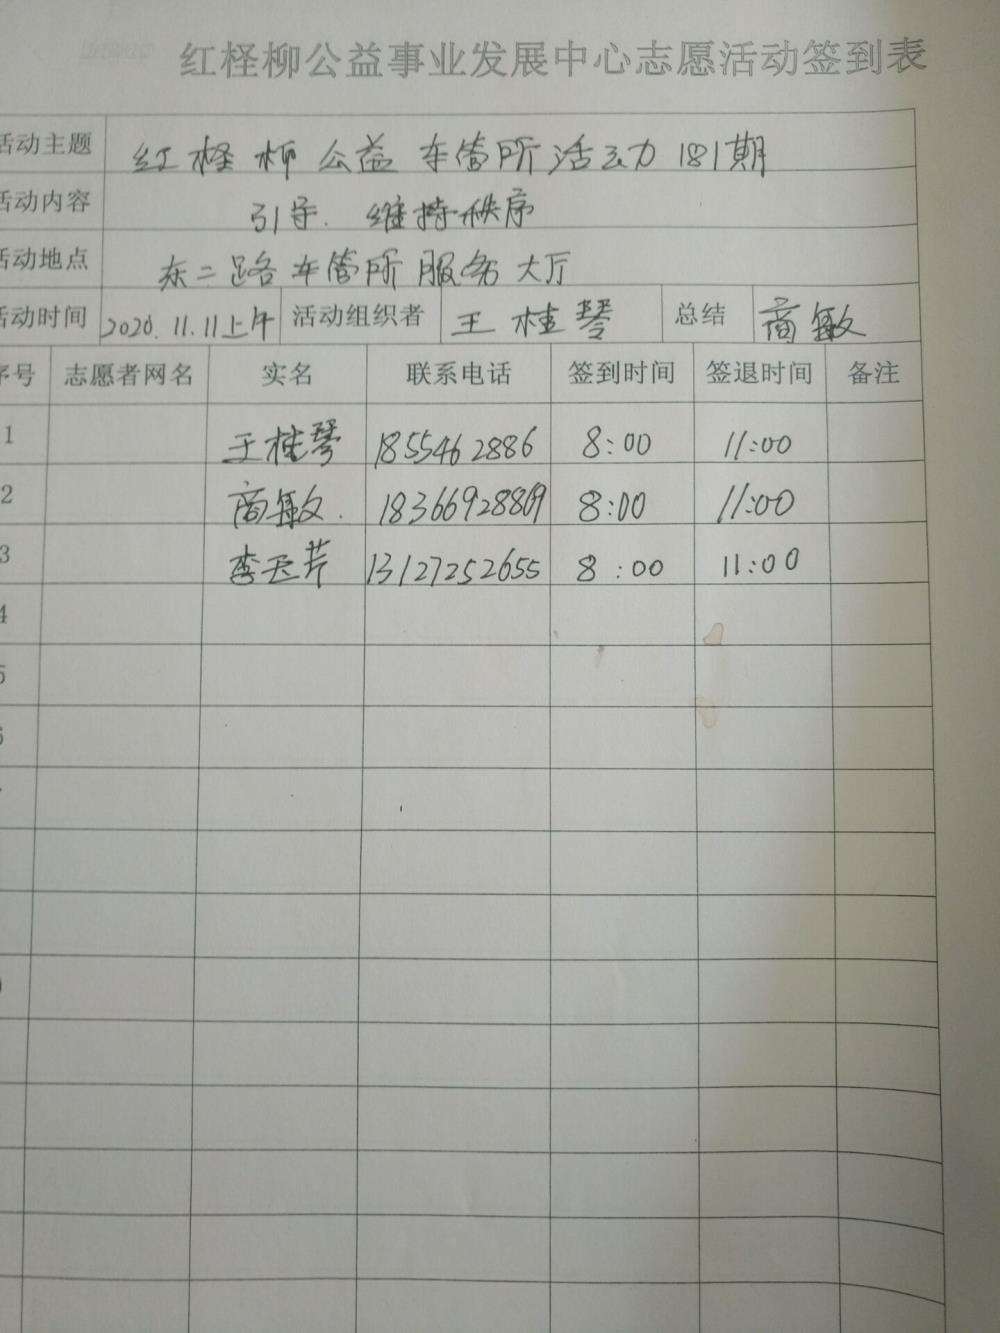 红柽柳公益事业发展中心志愿活动签到表
活动主题 红柽柳公益车管所活动181期
活动内容 引导.维持秩序
活动地点 东二路车管所服务大厅
活动时间 2020.11.11上午 活动组织者 王桂琴 总结 商敏
序号 志愿者网名 实名 联系电话 签到时间 签退时间 备注
1 王桂琴 1855462886 8:00 11:00
2 商敏. 18366928869 8:00 11:00
3 李玉芹 13127252655 8:00 11:00
4
5
6